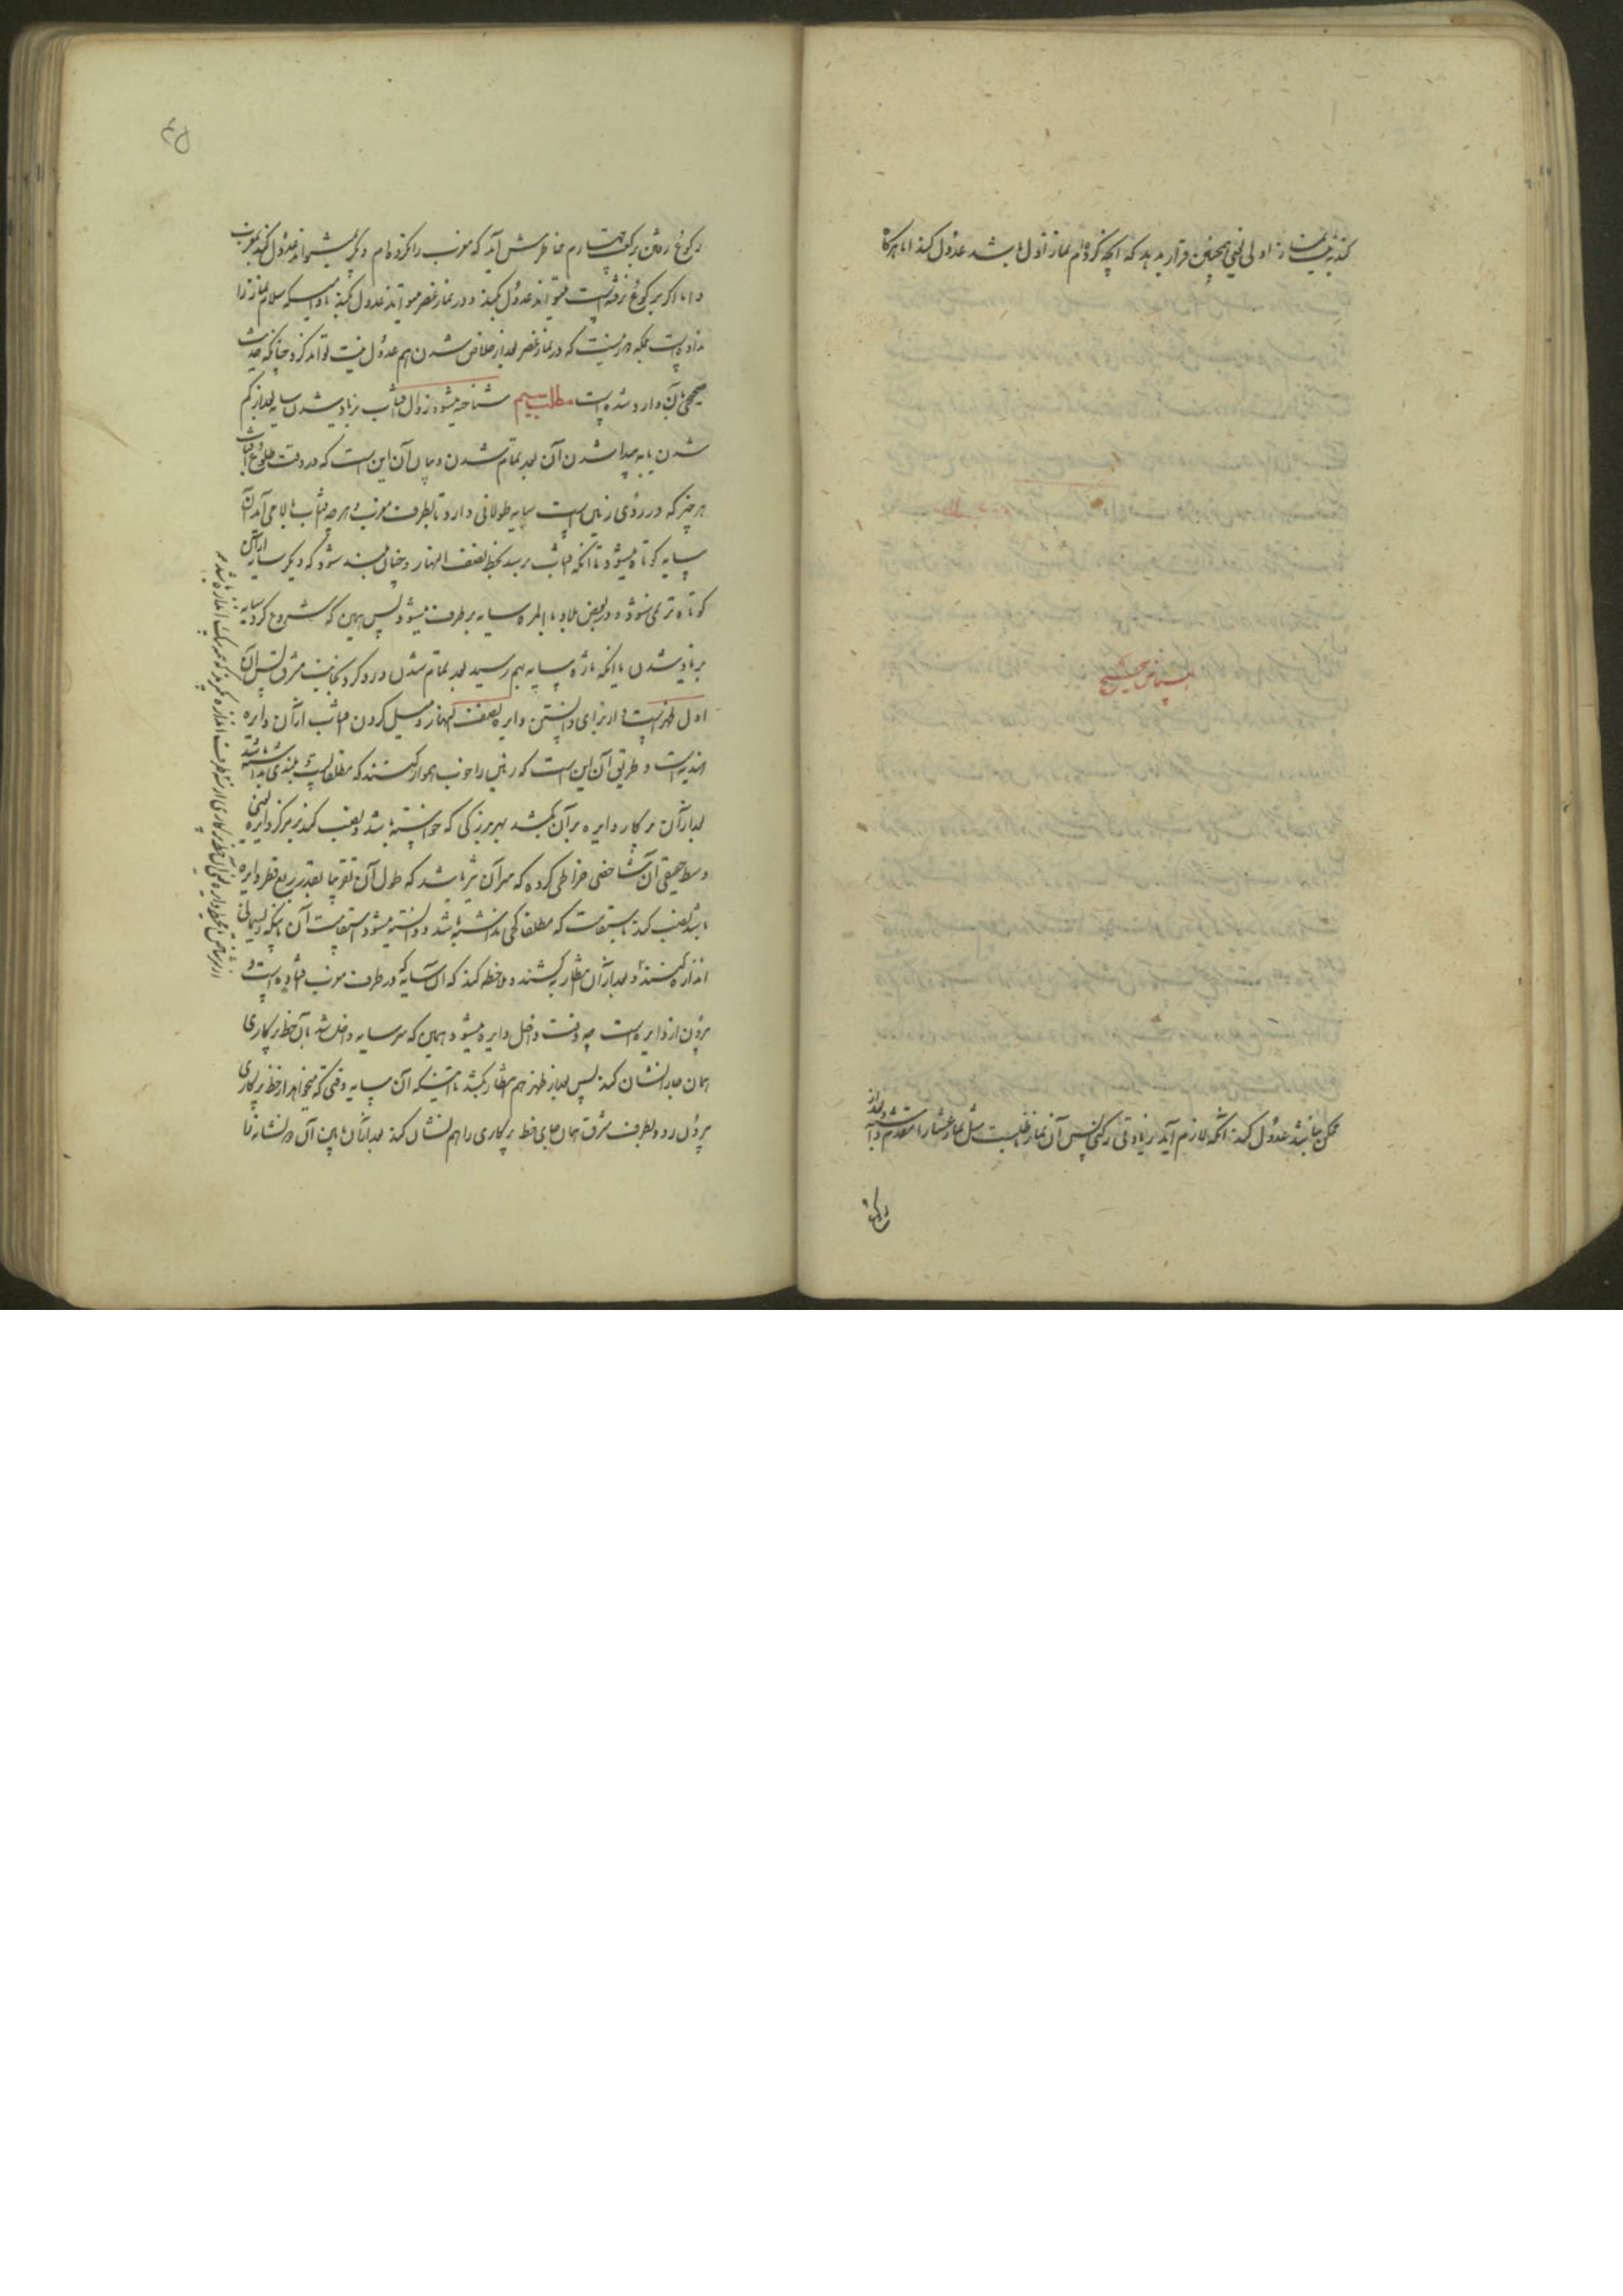 کند به نیت نماز اولی یعنی همچنین قرار بدهد که آنچه کرده‌ام نماز اول باشد عدول کند اما هرگاه
بیاض صحیح
ممکن نباشد عدول کند آنکه لازم آید زیادتی رکنی پس آن نماز مثل نماز عشا را مقدم و بعد از
رکوع
۴۵
رکوع رفتن رکعت چهارم بخاطرش آید که مغرب را نکرده‌ام دیگر نمیتواند عدول کند بمغرب
و اما اگر برکوع نرفته است میتواند عدول کند و در نماز عصر میتواند عدول کند مادامیکه سلام نماز را
نداده است بلکه دور نیست که در نماز عصر بعد از خلاص شدن هم عدول نیت تواند کرد چنانکه حدیث
صحیح بآن وارد شده است مطلب سیم شناخته میشود زوال آفتاب بزیاد شدن سایه بعد از کم
شدن یا به پیدا شدن آن بعد تمام شدن و بیان آن این است که در وقت طلوع آفتاب
هر چیز که در روی زمین است سایه طولانی دارد تا بطرف مغرب و هرچه آفتاب بالا می‌آید آن
سایه کوتاه میشود تا آنکه آفتاب برسد بخط نصف النهار و چنان بلند شود که دیگر سایه از آن
کوتاه‌تر نمی‌شود و در بعض بلاد بالمره سایه برطرف میشود پس همین که شروع کرد سایه
بزیاد شدن یا آنکه تازه سایه بهم رسید بعد تمام شدن و رو کرد بجانب مشرق پس آن
اول ظهر است و از برای دانستن دایره نصف النهار و میل کردن آفتاب از آن دایره
هندیه است و طریق آن این است که زمین را خوب هموار کنند که مطلقا پست بلندی نداشته باشد
بعد از آن پرکار دایره بر آن بکشد بهر بزرگی که خواسته باشد و نصب کند بر مرکز دایره یعنی
وسط حقیقی آن شاخصی خراطی کرده که سر آن تیز باشد که طول آن تقریبا بقدر ربع قطر دایره
باشد نصب کند باستقامت که مطلقا کجی نداشته باشد و دانسته میشود استقامت آن باینکه ریسمانی
اندازه کنند و بعد از آن انتظار بکشند و ملاحظه کند که آن سایه که در طرف مغرب افتاده است و
بیرون از دایره است چه وقت داخل دایره میشود همین که سر سایه داخل شد بآن خط پرکاری
همان جا را نشان کند پس بعد از ظهر هم انتظار بکشد تا اینکه آن سایه وقتی که میخواهد از خط پرکاری
بیرون رود بطرف مشرق همان جای خط پرکاری را هم نشان کند بعد از آن مابین آن دو نشانه را
از سر شاخص بمحیط دایره